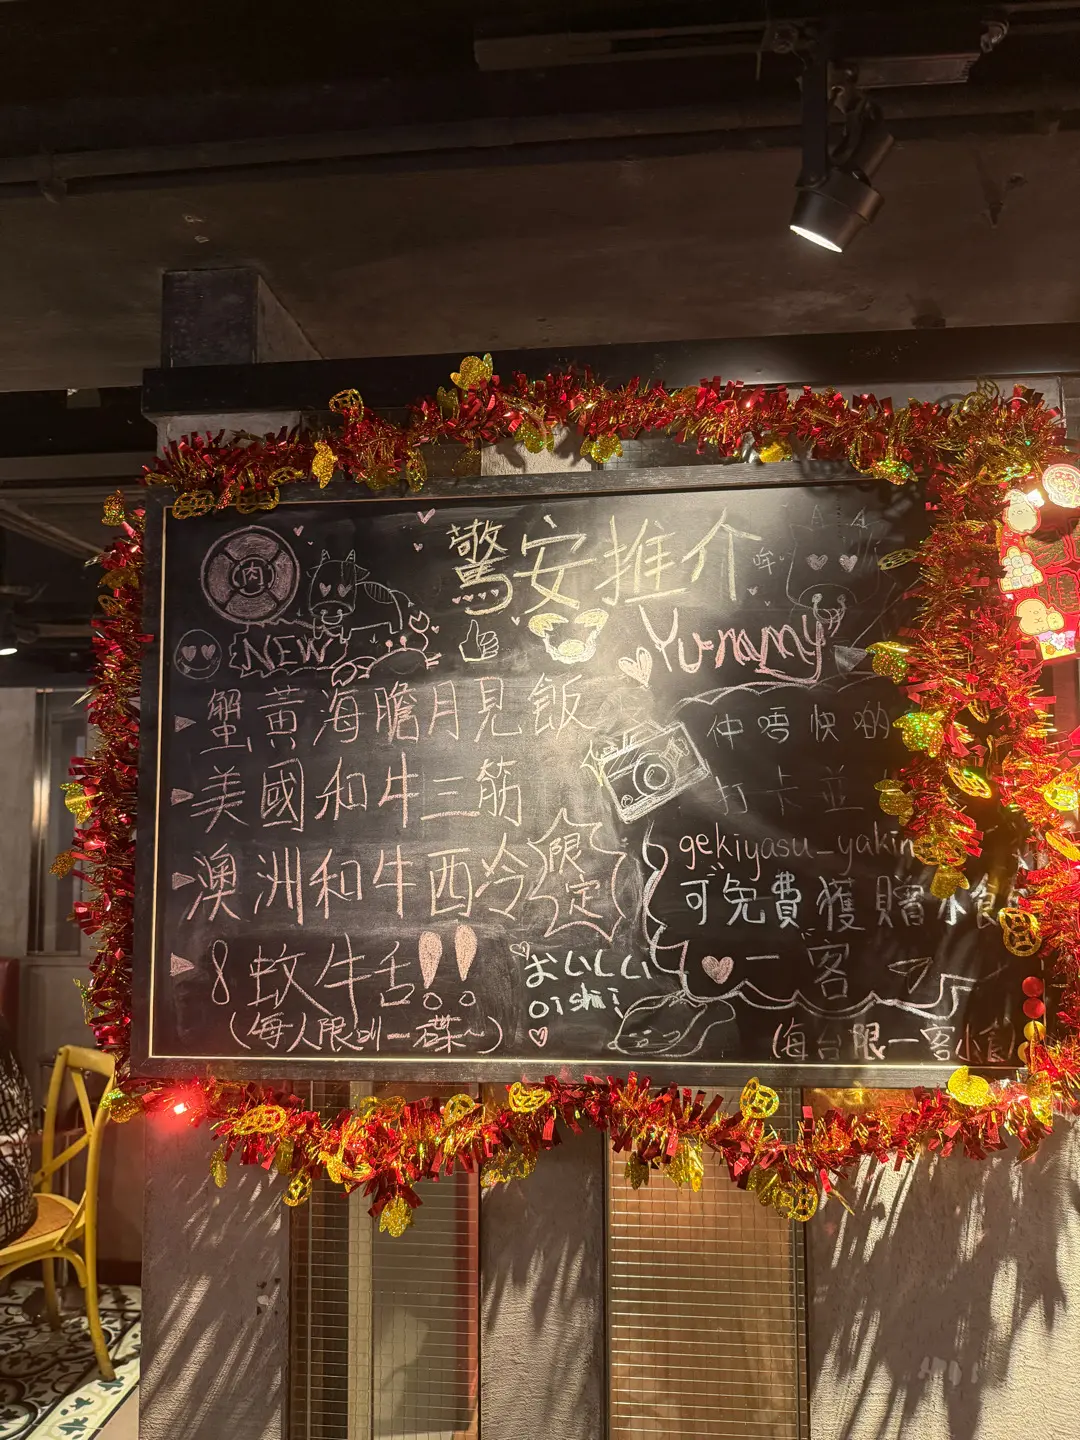 驚安推介
肉
哞
NEW
Yummy
蟹黃海膽月見飯
美國和牛三筋
澳洲和牛西冷
限定
8蚊牛舌!!
(每人限叫一碟~)
おいしい
oishii
仲唔快啲
打卡並
gekiyasu_yakin
可免費獲贈小食
一客
(每台限一客小食